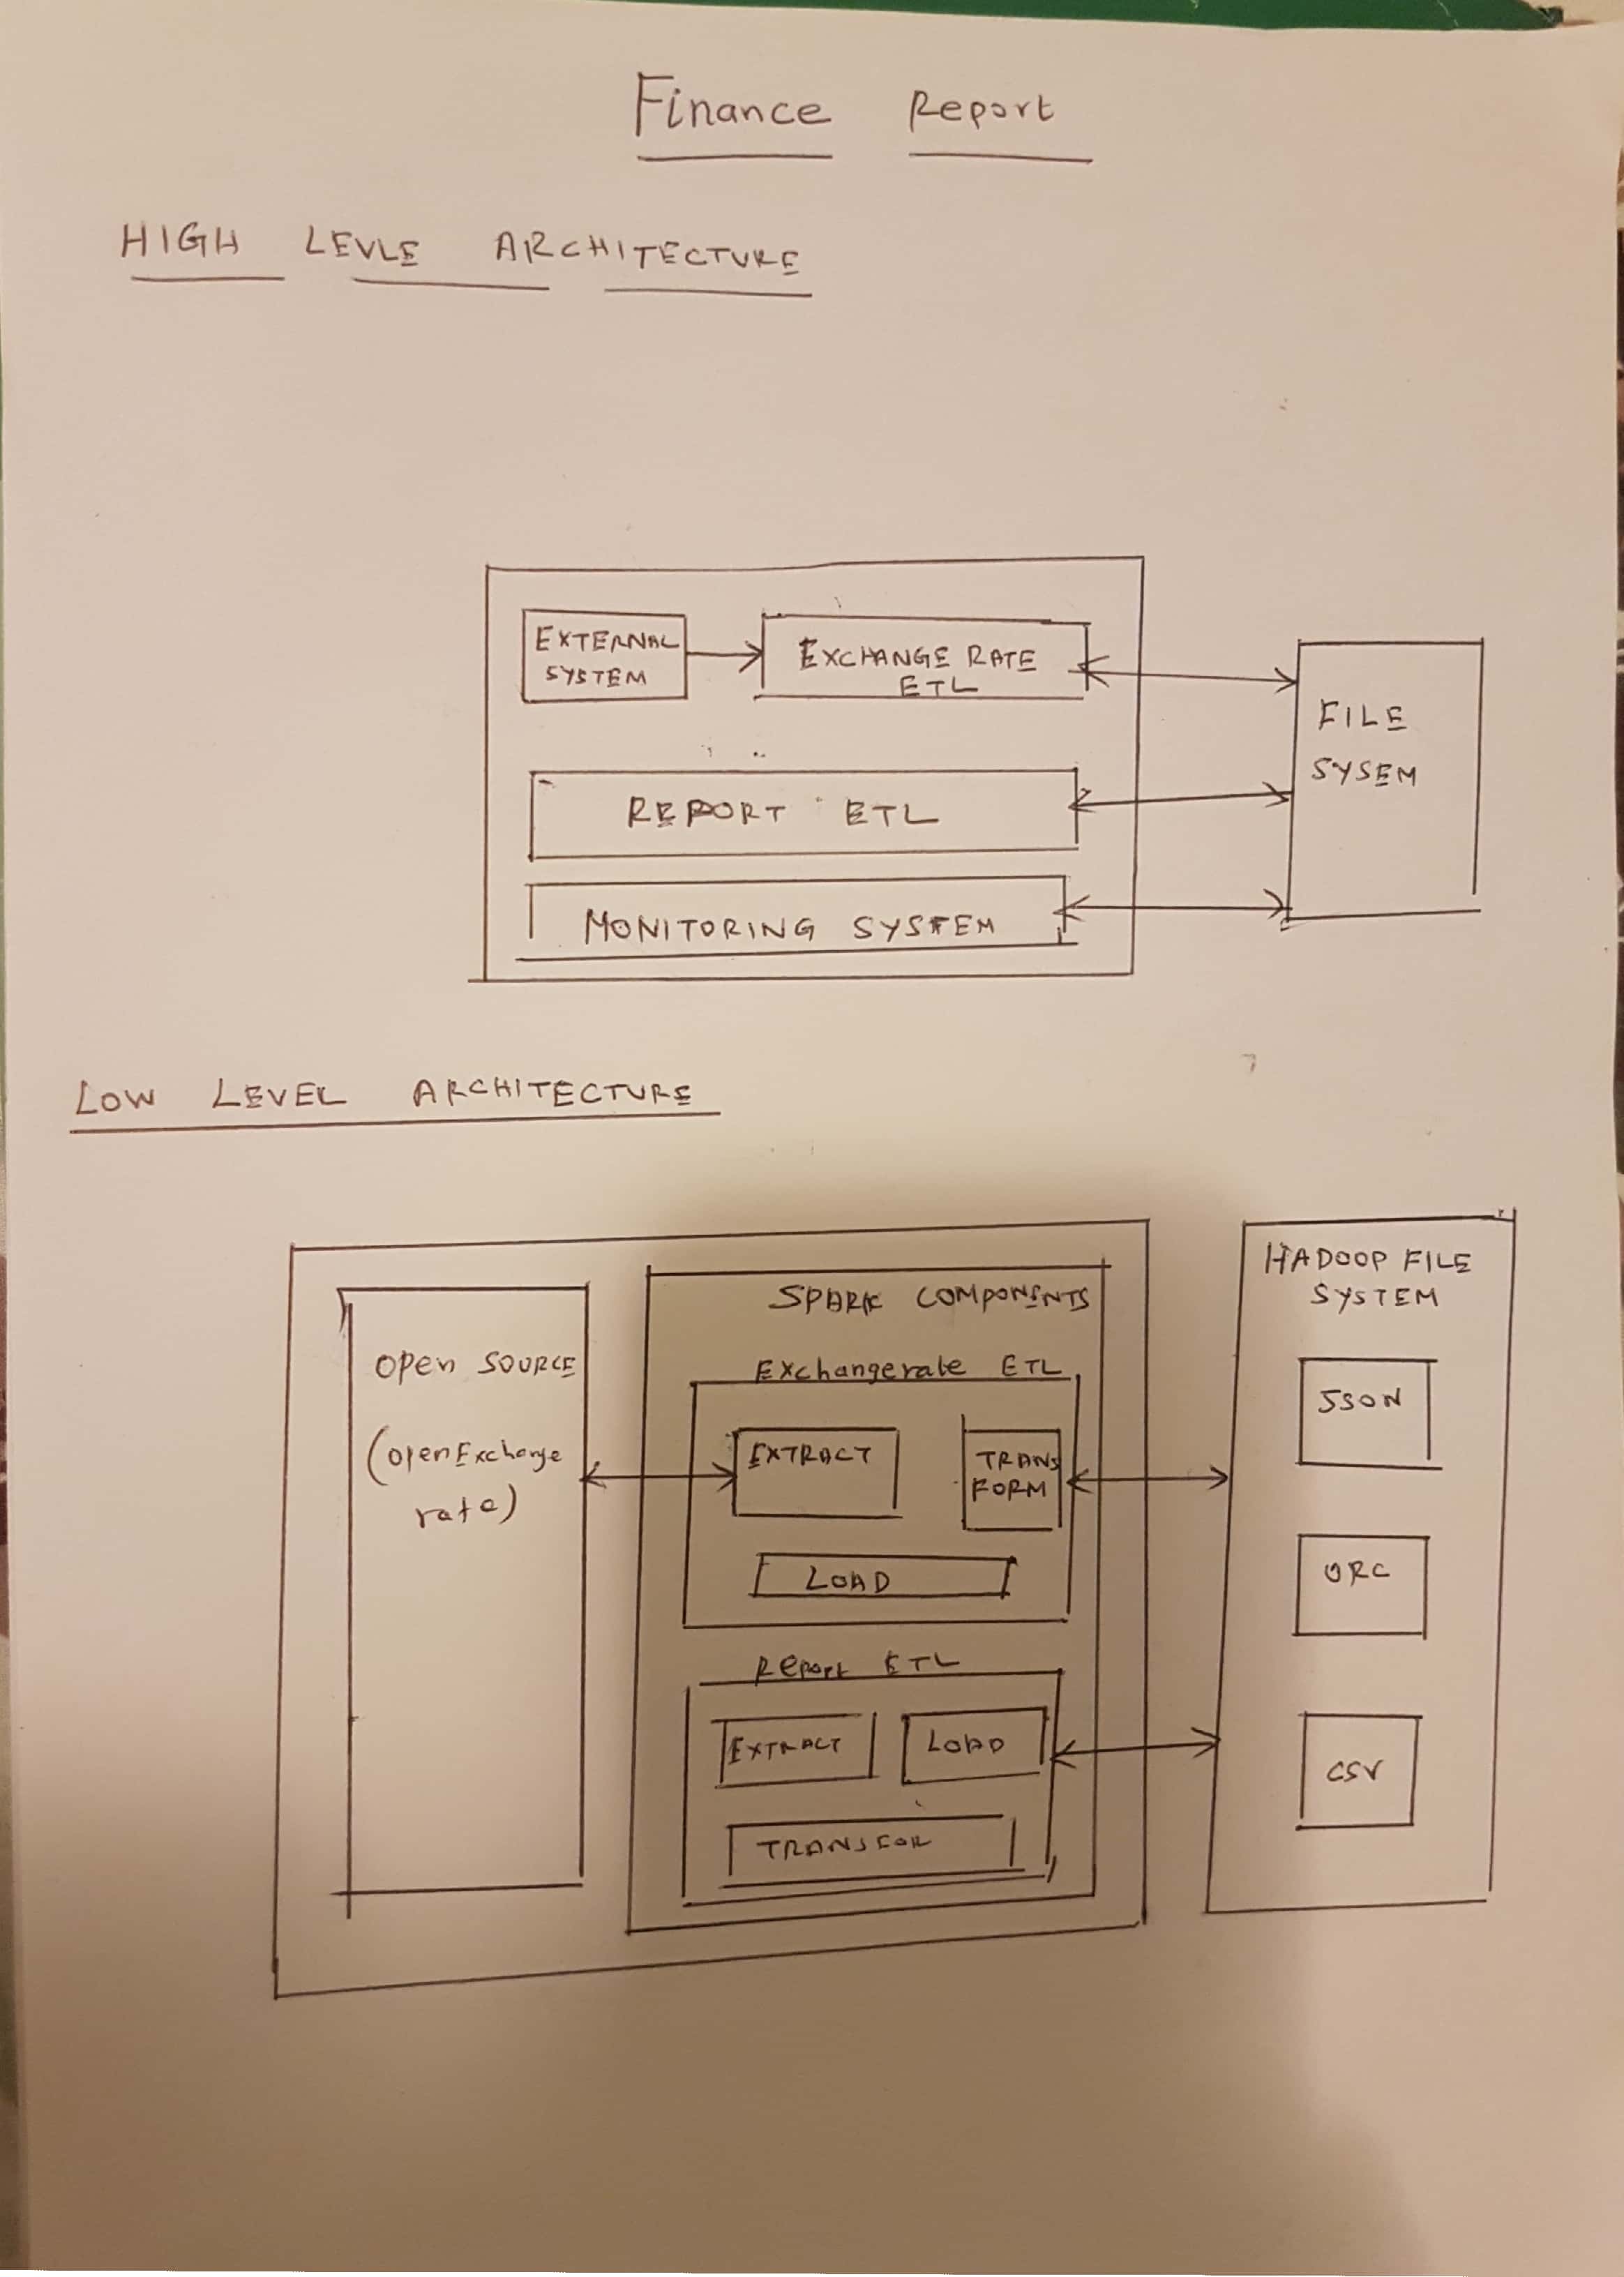 Finance Report
HIGH LEVLE ARCHITECTURE
EXTERNAL
SYSTEM
EXCHANGE RATE
ETL
FILE
SYSEM
REPORT ETL
MONITORING SYSTEM
LOW LEVEL ARCHITECTURE
OPEN SOURCE
(openExchange
rate)
SPARK COMPONENTS
Exchangerate ETL
EXTRACT
TRANS
FORM
LOAD
Report ETL
EXTRACT
LOAD
TRANSFOR
HADOOP FILE
SYSTEM
JSON
ORC
CSV